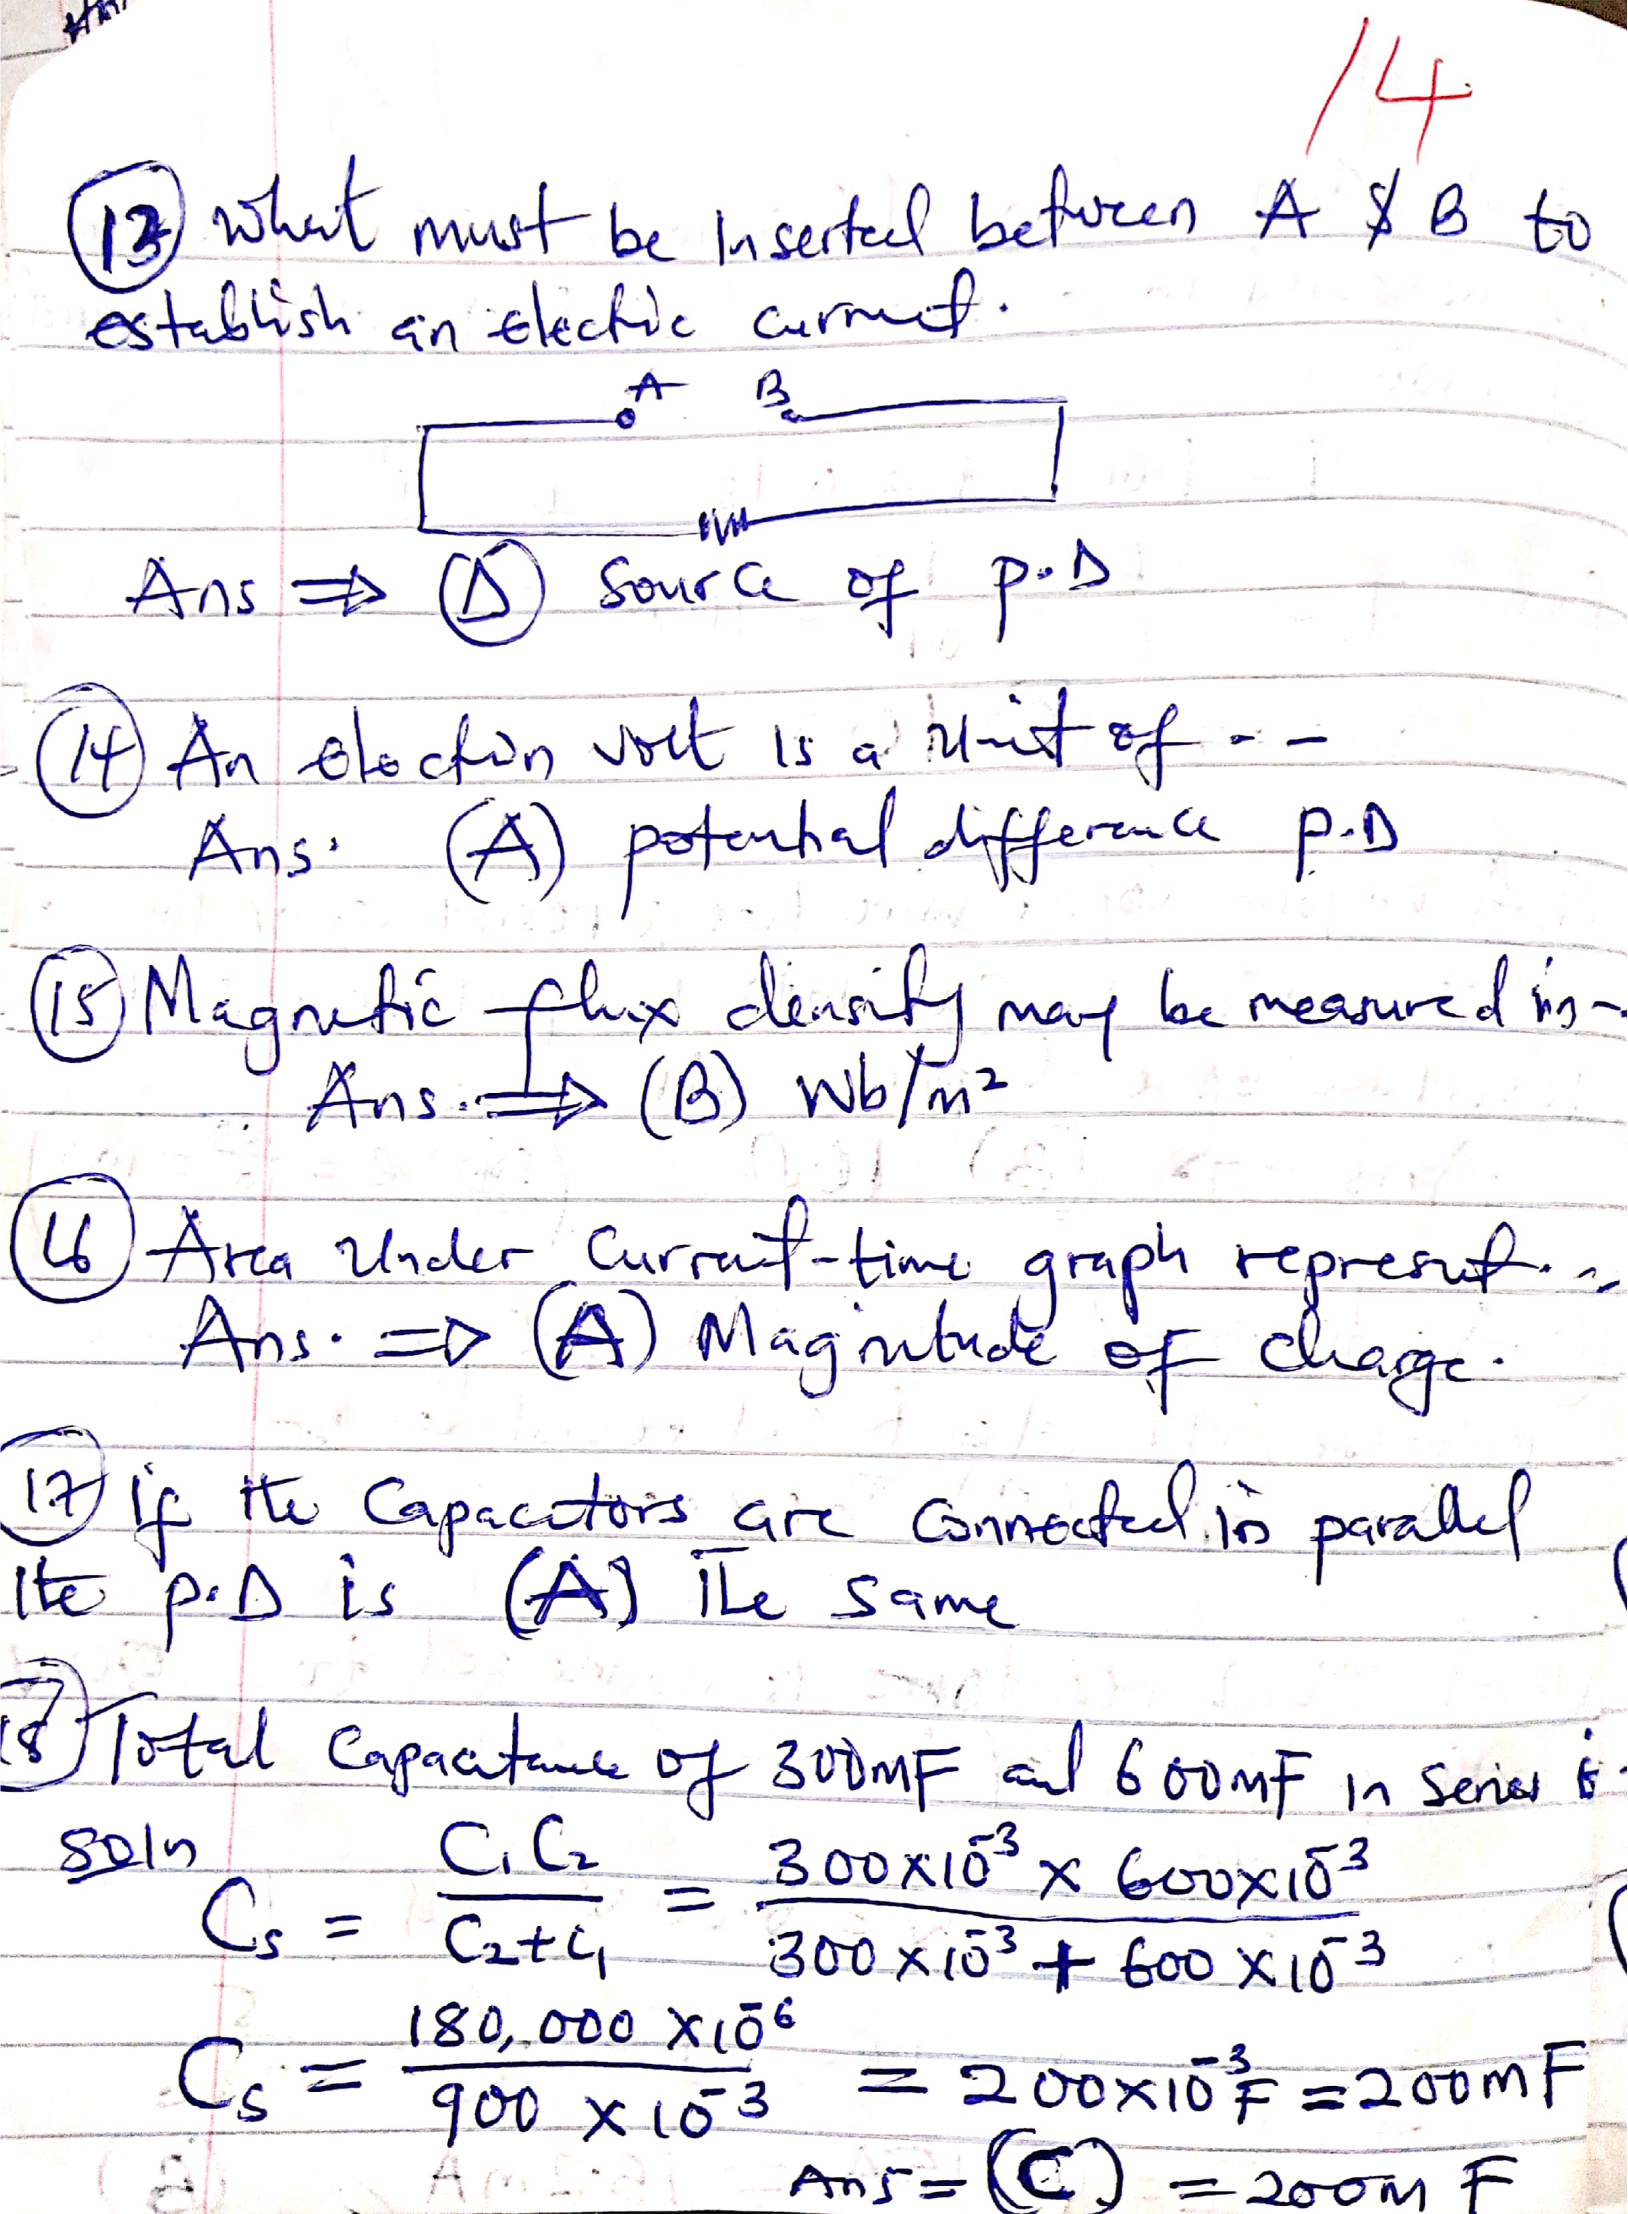 14
(13) What must be Inserted between A & B to
establish an electric current.
A B
Ans ⇒ (D) Source of p.D
(14) An electron volt is a Unit of - -
Ans. (A) potential difference p.D
(15) Magnetic flux density may be measured in -
Ans. ⇒ (B) Wb/m²
(16) Area Under Current-time graph represent...
Ans. ⇒ (A) Magnitude of charge.
(17) If the Capacitors are Connected in parallel
the p.D is (A) The same
(18) Total Capacitance of 300mF and 600mF in Series is
Soln
Cs = C₁C₂ / C₂+C₁ = 300×10⁻³ × 600×10⁻³ / 300×10⁻³ + 600×10⁻³
Cs = 180,000 ×10⁻⁶ / 900 ×10⁻³ = 200×10⁻³F = 200mF
Ans = (C) = 200m F